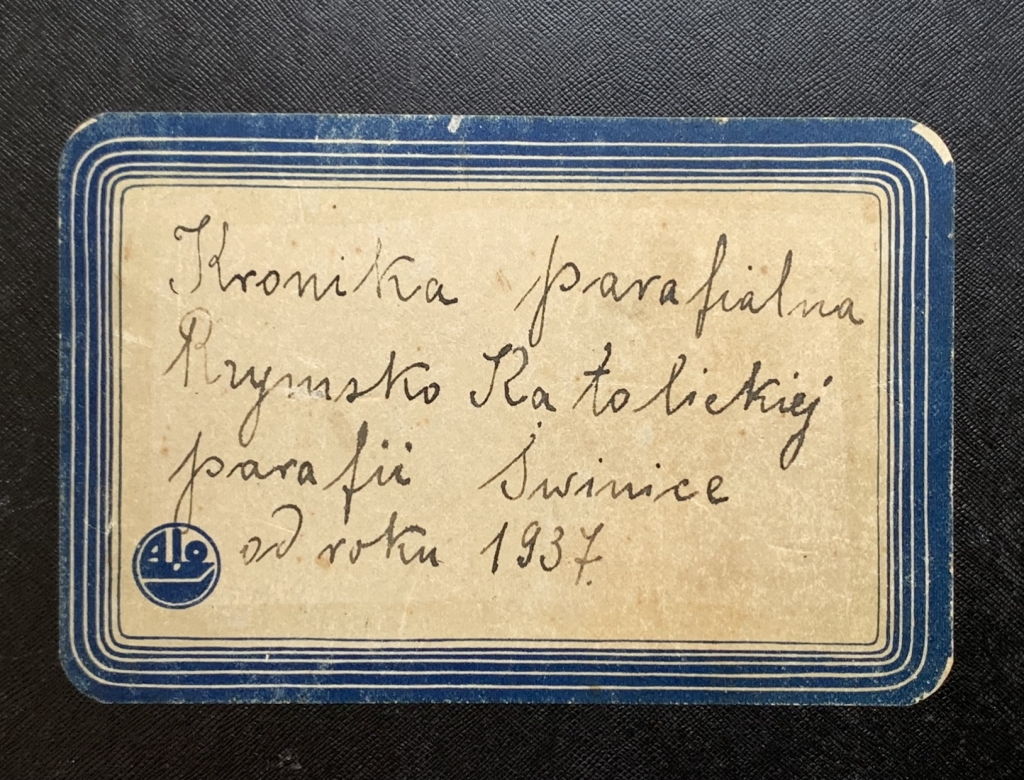 Kronika parafialna
Rzymsko Katolickiej
parafii Świnice
od roku 1937.